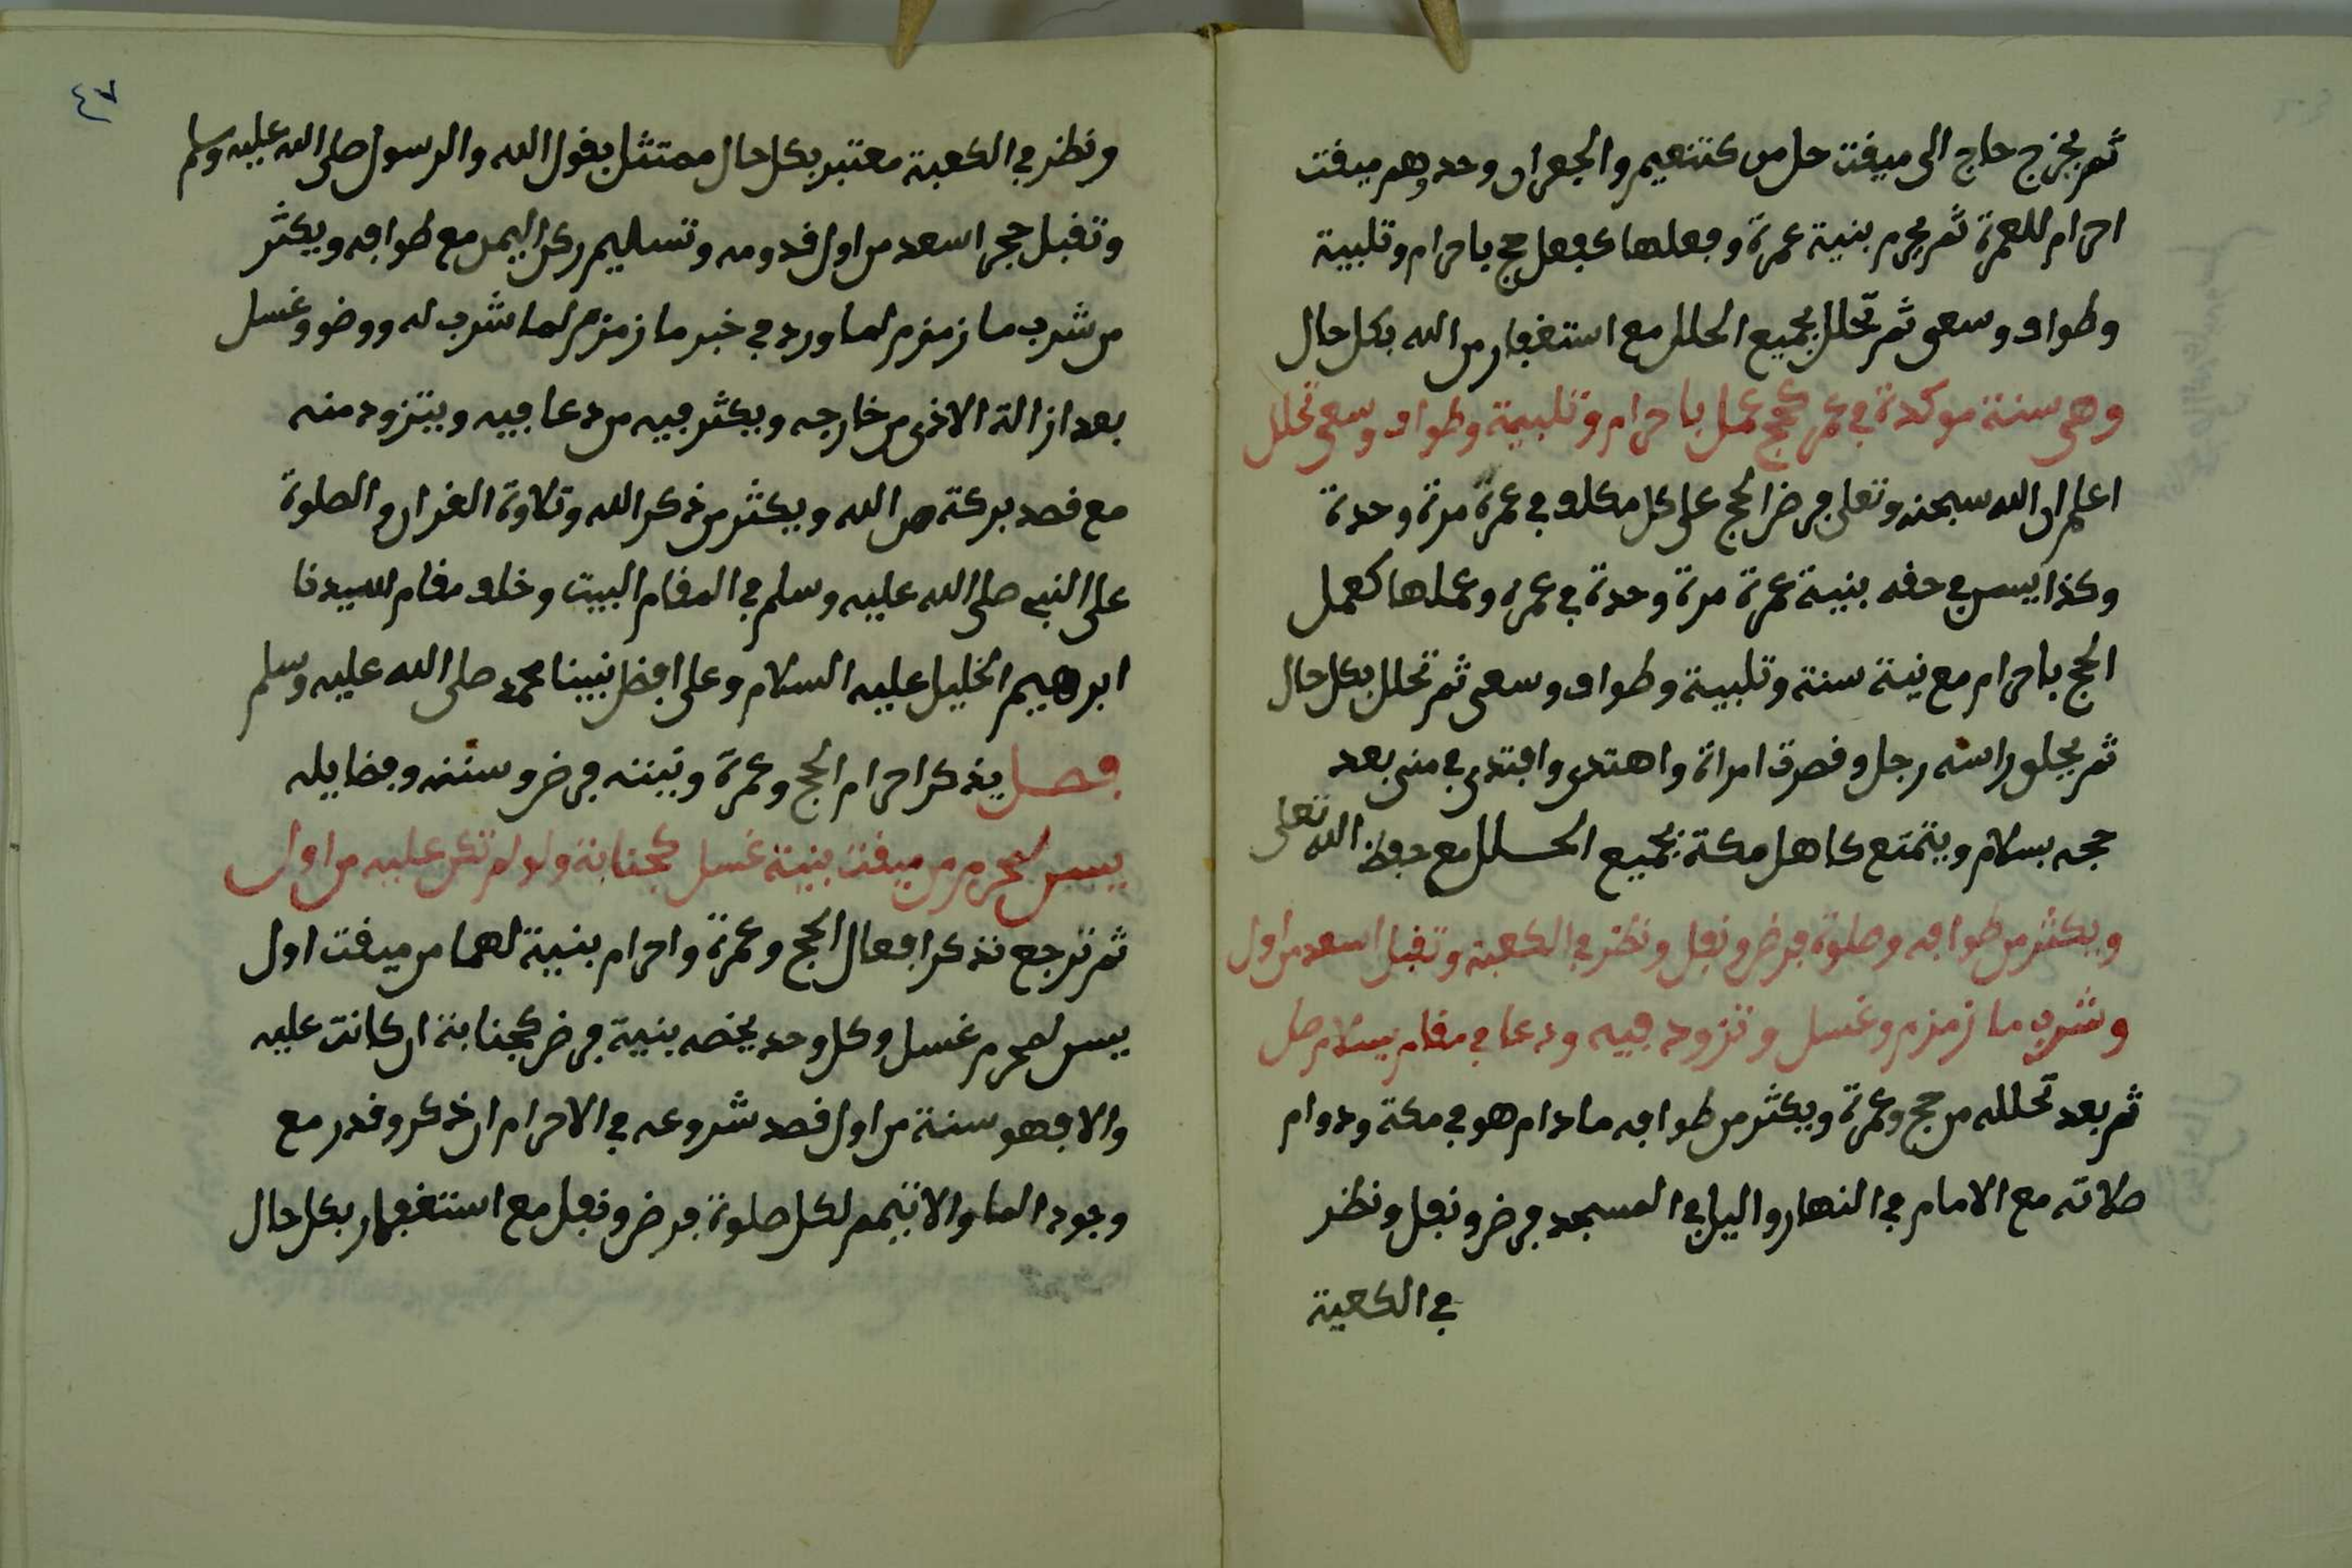 ثم يخرج حاج الى ميقت حل من كتنعيم والجعران وحد وهم ميقت
احرام للعمرة ثم يحرم بنية عمرة وفعلها كفعل حج باحرام وتلبية
وطواف وسعى ثم تحلل بجميع الحلل مع استغفار من الله بكل حال
وهى سنة موكدة في عمر كحج عمل باحرام وتلبية وطواف وسعى تحلل
اعلم ان الله سبحنه وتعلى فرض الحج على كل مكلف في عمرة مرة وحدة
وكذا يسن في حقه بنية عمرة مرة وحدة في عمره وعملها كعمل
الحج باحرام مع نية سنة وتلبية وطواف وسعى ثم تحلل بكل حال
ثم يحلق راسه رجل وقصرت امراة واهتدى وافتدى في منى بعد
حجه بسلام ويتمتع كاهل مكة بجميع الحلل مع حفظ الله تعلى
ويكثر من طوافه وصلوة فرض ونفل ونظر في الكعبة وتقبل اسعد من اول
وشرب ما زمزم وغسل وتزود فيه ودعا في مقام بسلام صل
ثم بعد تحلله من حج وعمرة ويكثر من طوافه ما دام هو في مكة ودوام
صلاته مع الامام في النهار واليل في المسجد فرض ونفل ونظر
في الكعبة
٤٧
ونظر في الكعبة معتبر بكل حال ممتثل بقول الله والرسول صلى الله عليه وسلم
وتقبل حجر اسعد من اول قدومه وتسليم ركن اليمن مع طوافه ويكثر
من شرب ما زمزم لما ورد في خبر ما زمزم لما شرب له ووضو وغسل
بعد ازالة الاذى من خارجه ويكثر فيه من دعا فيه ويتزود منه
مع قصد بركة من الله ويكثر من ذكر الله وتلاوة القران والصلوة
على النبي صلى الله عليه وسلم في المقام البيت وخلف مقام لسيدنا
ابرهيم الخليل عليه السلام وعلى افضل نبينا محمد صلى الله عليه وسلم
فصل يذكر احرام الحج وعمرة وتبينه فرض وسننه وفضايله
يسن لمحرم من ميقت بنية غسل كجنابة ولو لم تكن عليه من اول
ثم ترجع تذكر افعال الحج وعمرة واحرام بنية لهما من ميقت اول
يسن لمحرم غسل وكل وحد يخصه بنية فرض كجنابة ان كانت عليه
والا فهو سنة من اول قصد شروعه في الاحرام ان ذكر وقدر مع
وجود الما والا تيمم لكل صلوة فرض ونفل مع استغفار بكل حال